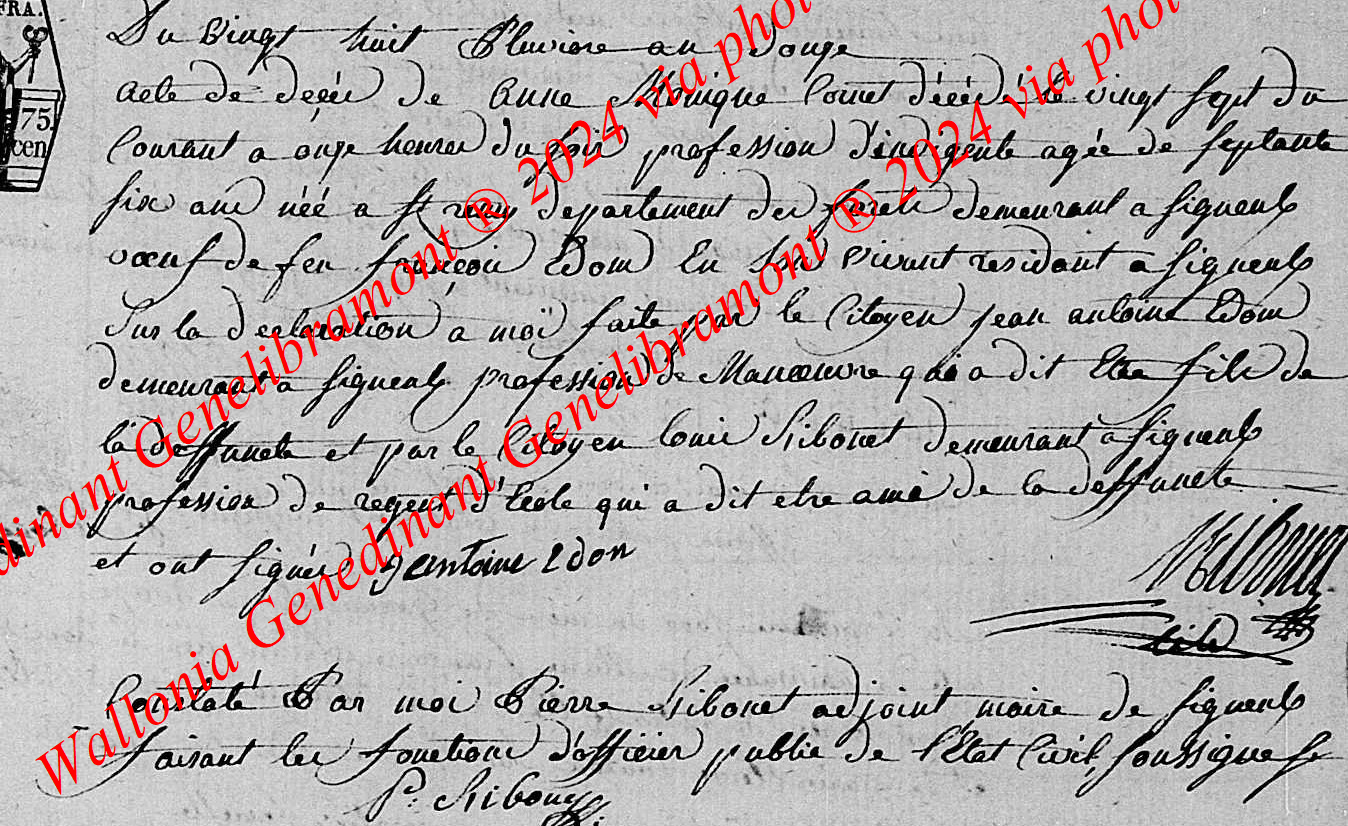 FRA.
75.
cen
Du vingt huit Pluviose an douze
acte de décès de Anne Monique Cornet décédé le vingt sept du
Courant a onze heures du soir profession d'indigente agée de septante
six ans néé a St remy departement des forets demeurant a signeulx
voeuf de feu françois Edom En son vivant residant a signeulx
Sur la declaration a moi faite par le Citoyen jean antoine Edom
demeurant a signeulx profession de Manoeuvre qui a dit Etre fils de
la deffuncte et par le Citoyen louis Ribonet demeurant a signeulx
profession de regent d'Ecole qui a dit etre ami de la deffuncte
et ont signés j antoine Edon
Constaté Par moi Pierre Ribonet adjoint maire de signeulx
faisant les fonctions d'officier public de l'Etat Civil soussigne
P. Ribonet
Wallonia Genedinant Genelibramont ® 2024 via
dinant Genelibramont ® 2024 via